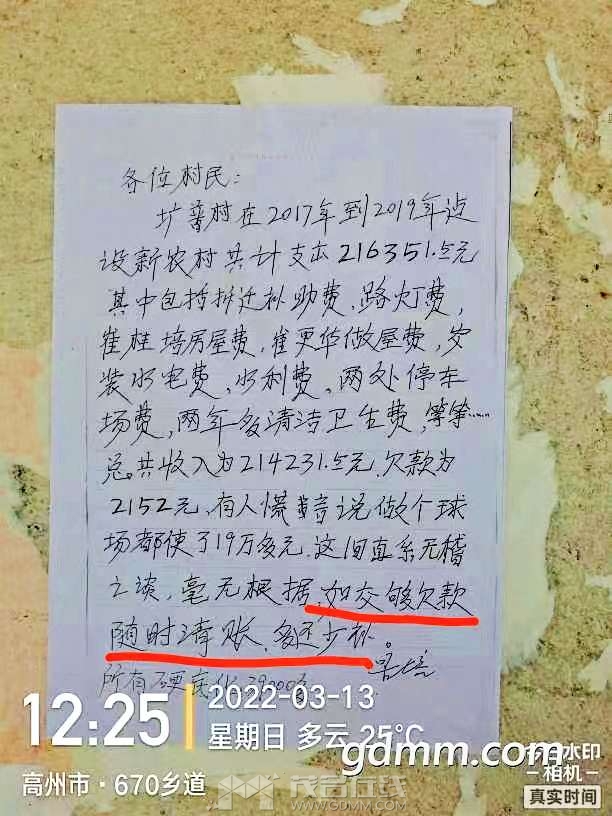 各位村民：
圹普村在2017年到2019年边
设新农村共计支出216351.5元
其中包括拆迁补助费、路灯费，
崔桂培房屋费，崔更华做屋费，安
装水电费，水利费，两处停车
场费，两年多清洁卫生费，等等……
总共收入为214231.5元.欠款为
2152元，有人慌 说做个球
场都使了19万多元.这间直系无稽
之谈，毫无根据，如交够欠款
随时清账，多还少补。
所有硬底化29000多
12:25
2022-03-13
星期日 多云 25℃
高州市·670乡道
gdmm.com
水印
-相机-
真实时间
茂名在线
WWW.GDMM.COM